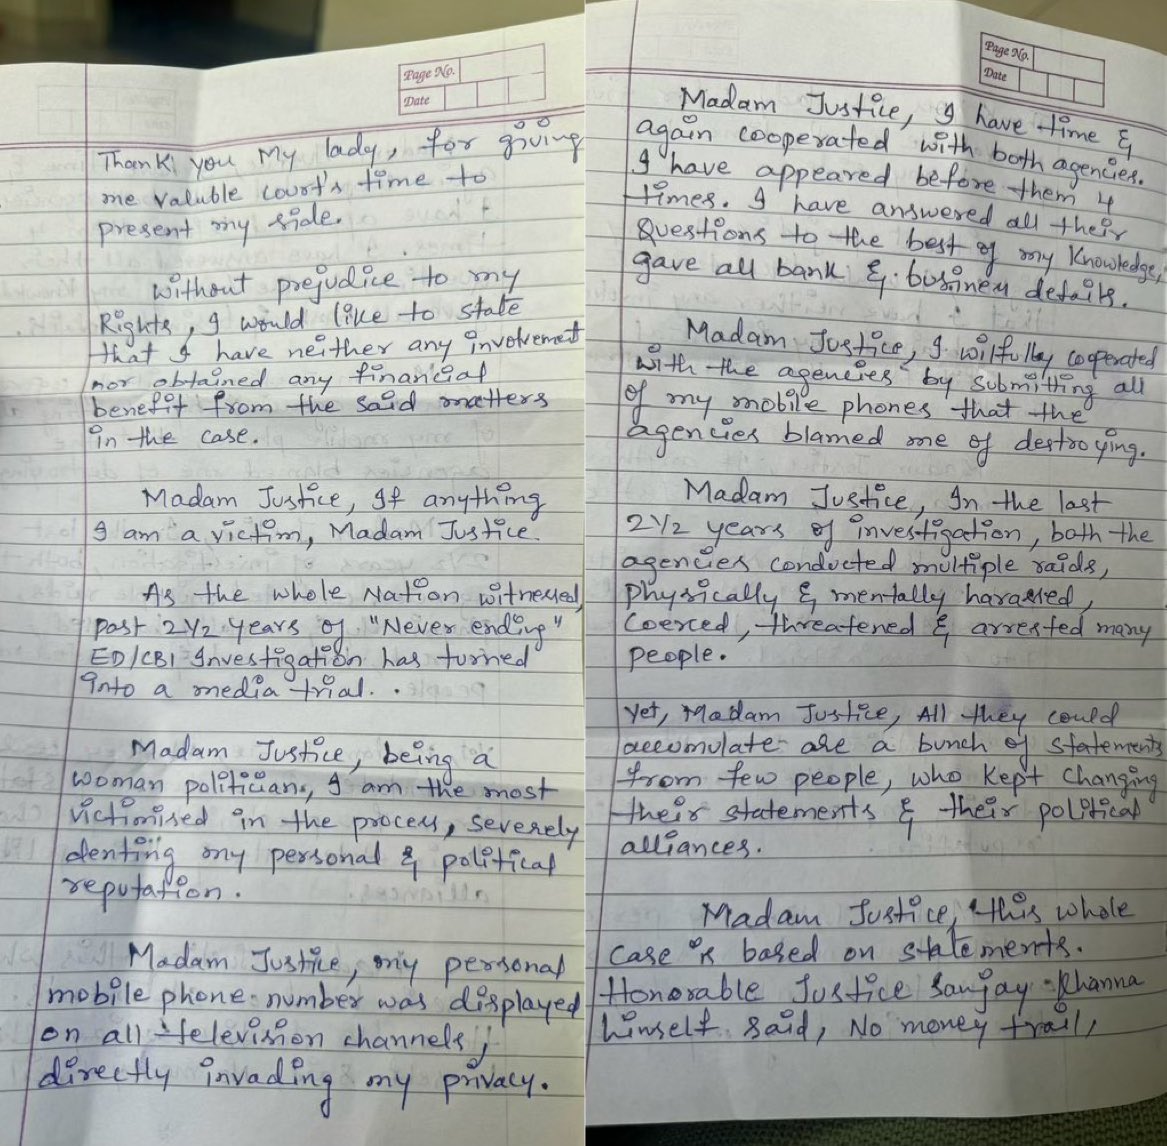 Page No.
Date
Thank you My lady, for giving
me valuble court's time to
present my side.
Without prejudice to my
Rights, I would like to state
that I have neither any involvement
nor obtained any financial
benefit from the said matters
in the case.
Madam Justice, If anything
I am a victim, Madam Justice.
As the whole Nation witnessed,
past 2 1/2 years of "Never ending"
ED/CBI Investigation has turned
into a media trial.
Madam Justice, being a
woman politician, I am the most
victimised in the process, severely
denting my personal & political
reputation.
Madam Justice, my personal
mobile phone number was displayed
on all television channels,
directly invading my privacy.
Page No.
Date
Madam Justice, I have time &
again cooperated with both agencies.
I have appeared before them 4
times. I have answered all their
Questions to the best of my Knowledge,
gave all bank & business details.
Madam Justice, I wilfully cooperated
with the agencies by submitting all
of my mobile phones that the
agencies blamed me of destroying.
Madam Justice, In the last
2 1/2 years of investigation, both the
agencies conducted multiple raids,
physically & mentally harassed,
coerced, threatened & arrested many
people.
Yet, Madam Justice, All they could
accumulate are a bunch of statements
from few people, who kept changing
their statements & their political
alliances.
Madam Justice, this whole
case is based on statements.
Honorable Justice Sanjay Khanna
himself said, No money trail,